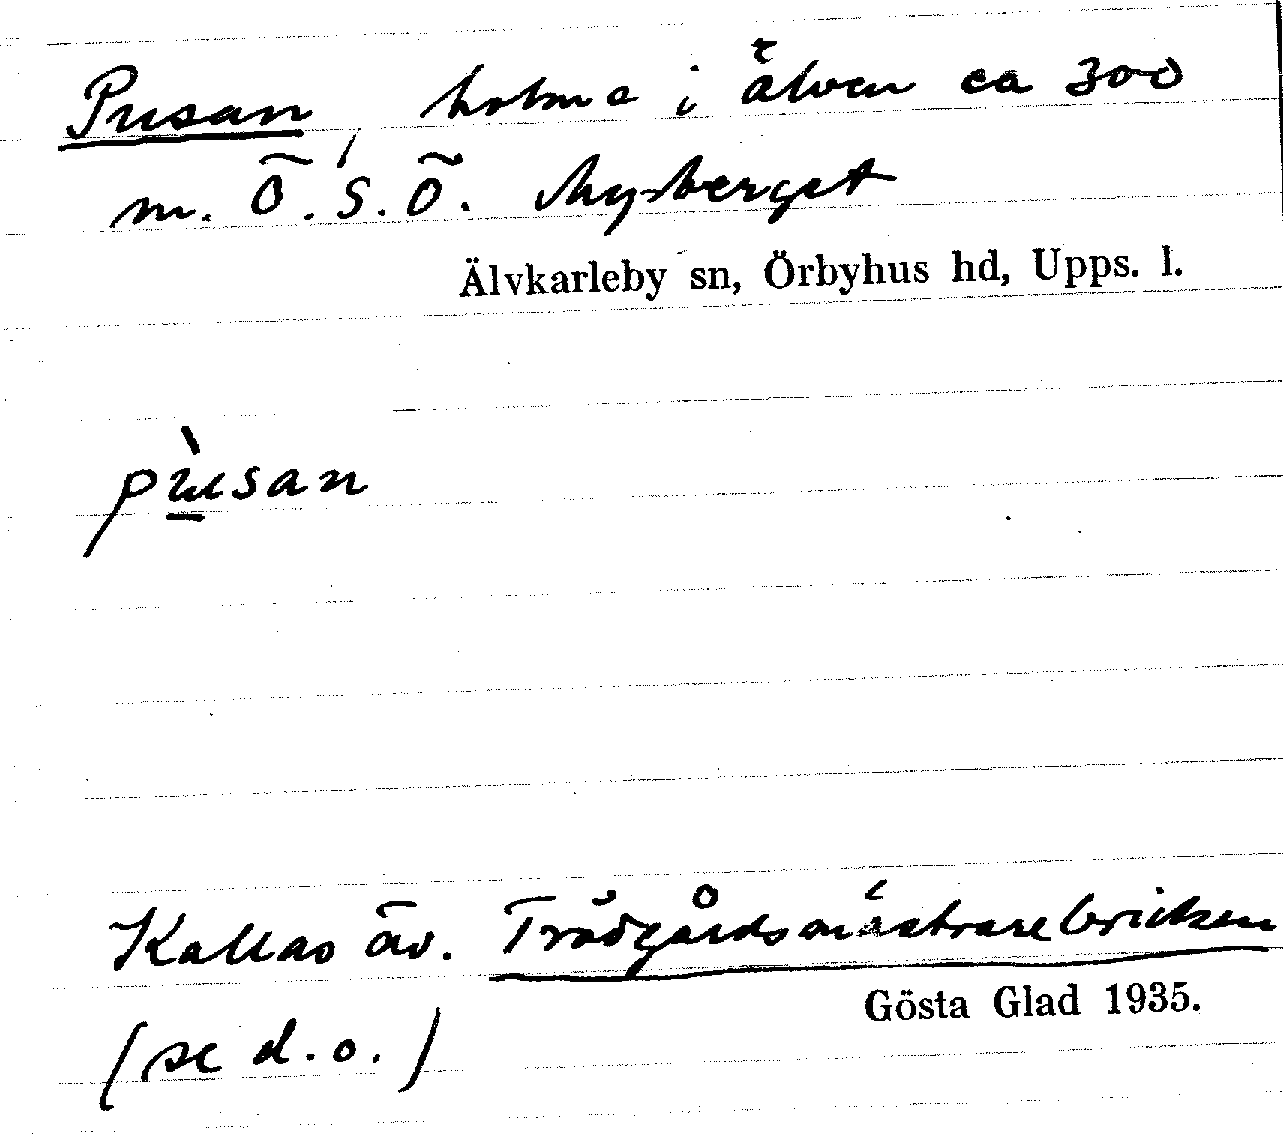 Pusan, holme i älven ca 300
m. Ö.S.Ö. Myrberget
Älvkarleby sn, Örbyhus hd, Upps. l.
pùsan
Kallas äv. Trädgårdsmästarebricken
Gösta Glad 1935.
(se d.o.)